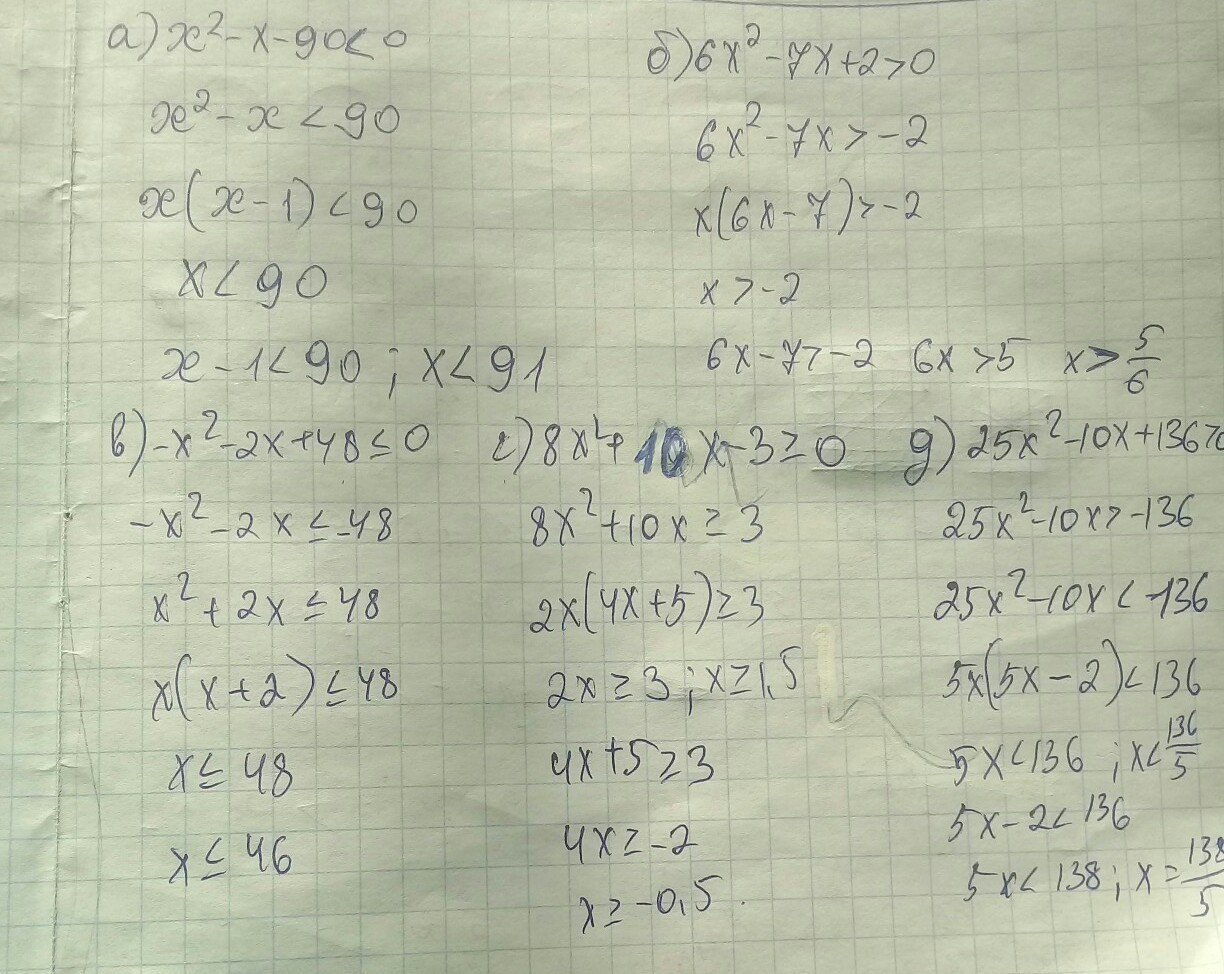 а) x² - x - 90 < 0
x² - x < 90
x(x - 1) < 90
x < 90
x - 1 < 90 ; x < 91
б) 6x² - 7x + 2 > 0
6x² - 7x > -2
x(6x - 7) > -2
x > -2
6x - 7 > -2 6x > 5 x > 5/6
в) -x² - 2x + 48 ≤ 0
-x² - 2x ≤ -48
x² + 2x ≤ 48
x(x + 2) ≤ 48
x ≤ 48
x ≤ 46
г) 8x² + 10x - 3 ≥ 0
8x² + 10x ≥ 3
2x(4x + 5) ≥ 3
2x ≥ 3 ; x ≥ 1,5
4x + 5 ≥ 3
4x ≥ -2
x ≥ -0,5.
д) 25x² - 10x + 136 > 0
25x² - 10x > -136
25x² - 10x < -136
5x(5x - 2) < 136
5x < 136 ; x < 136/5
5x - 2 < 136
5x < 138 ; x = 138/5